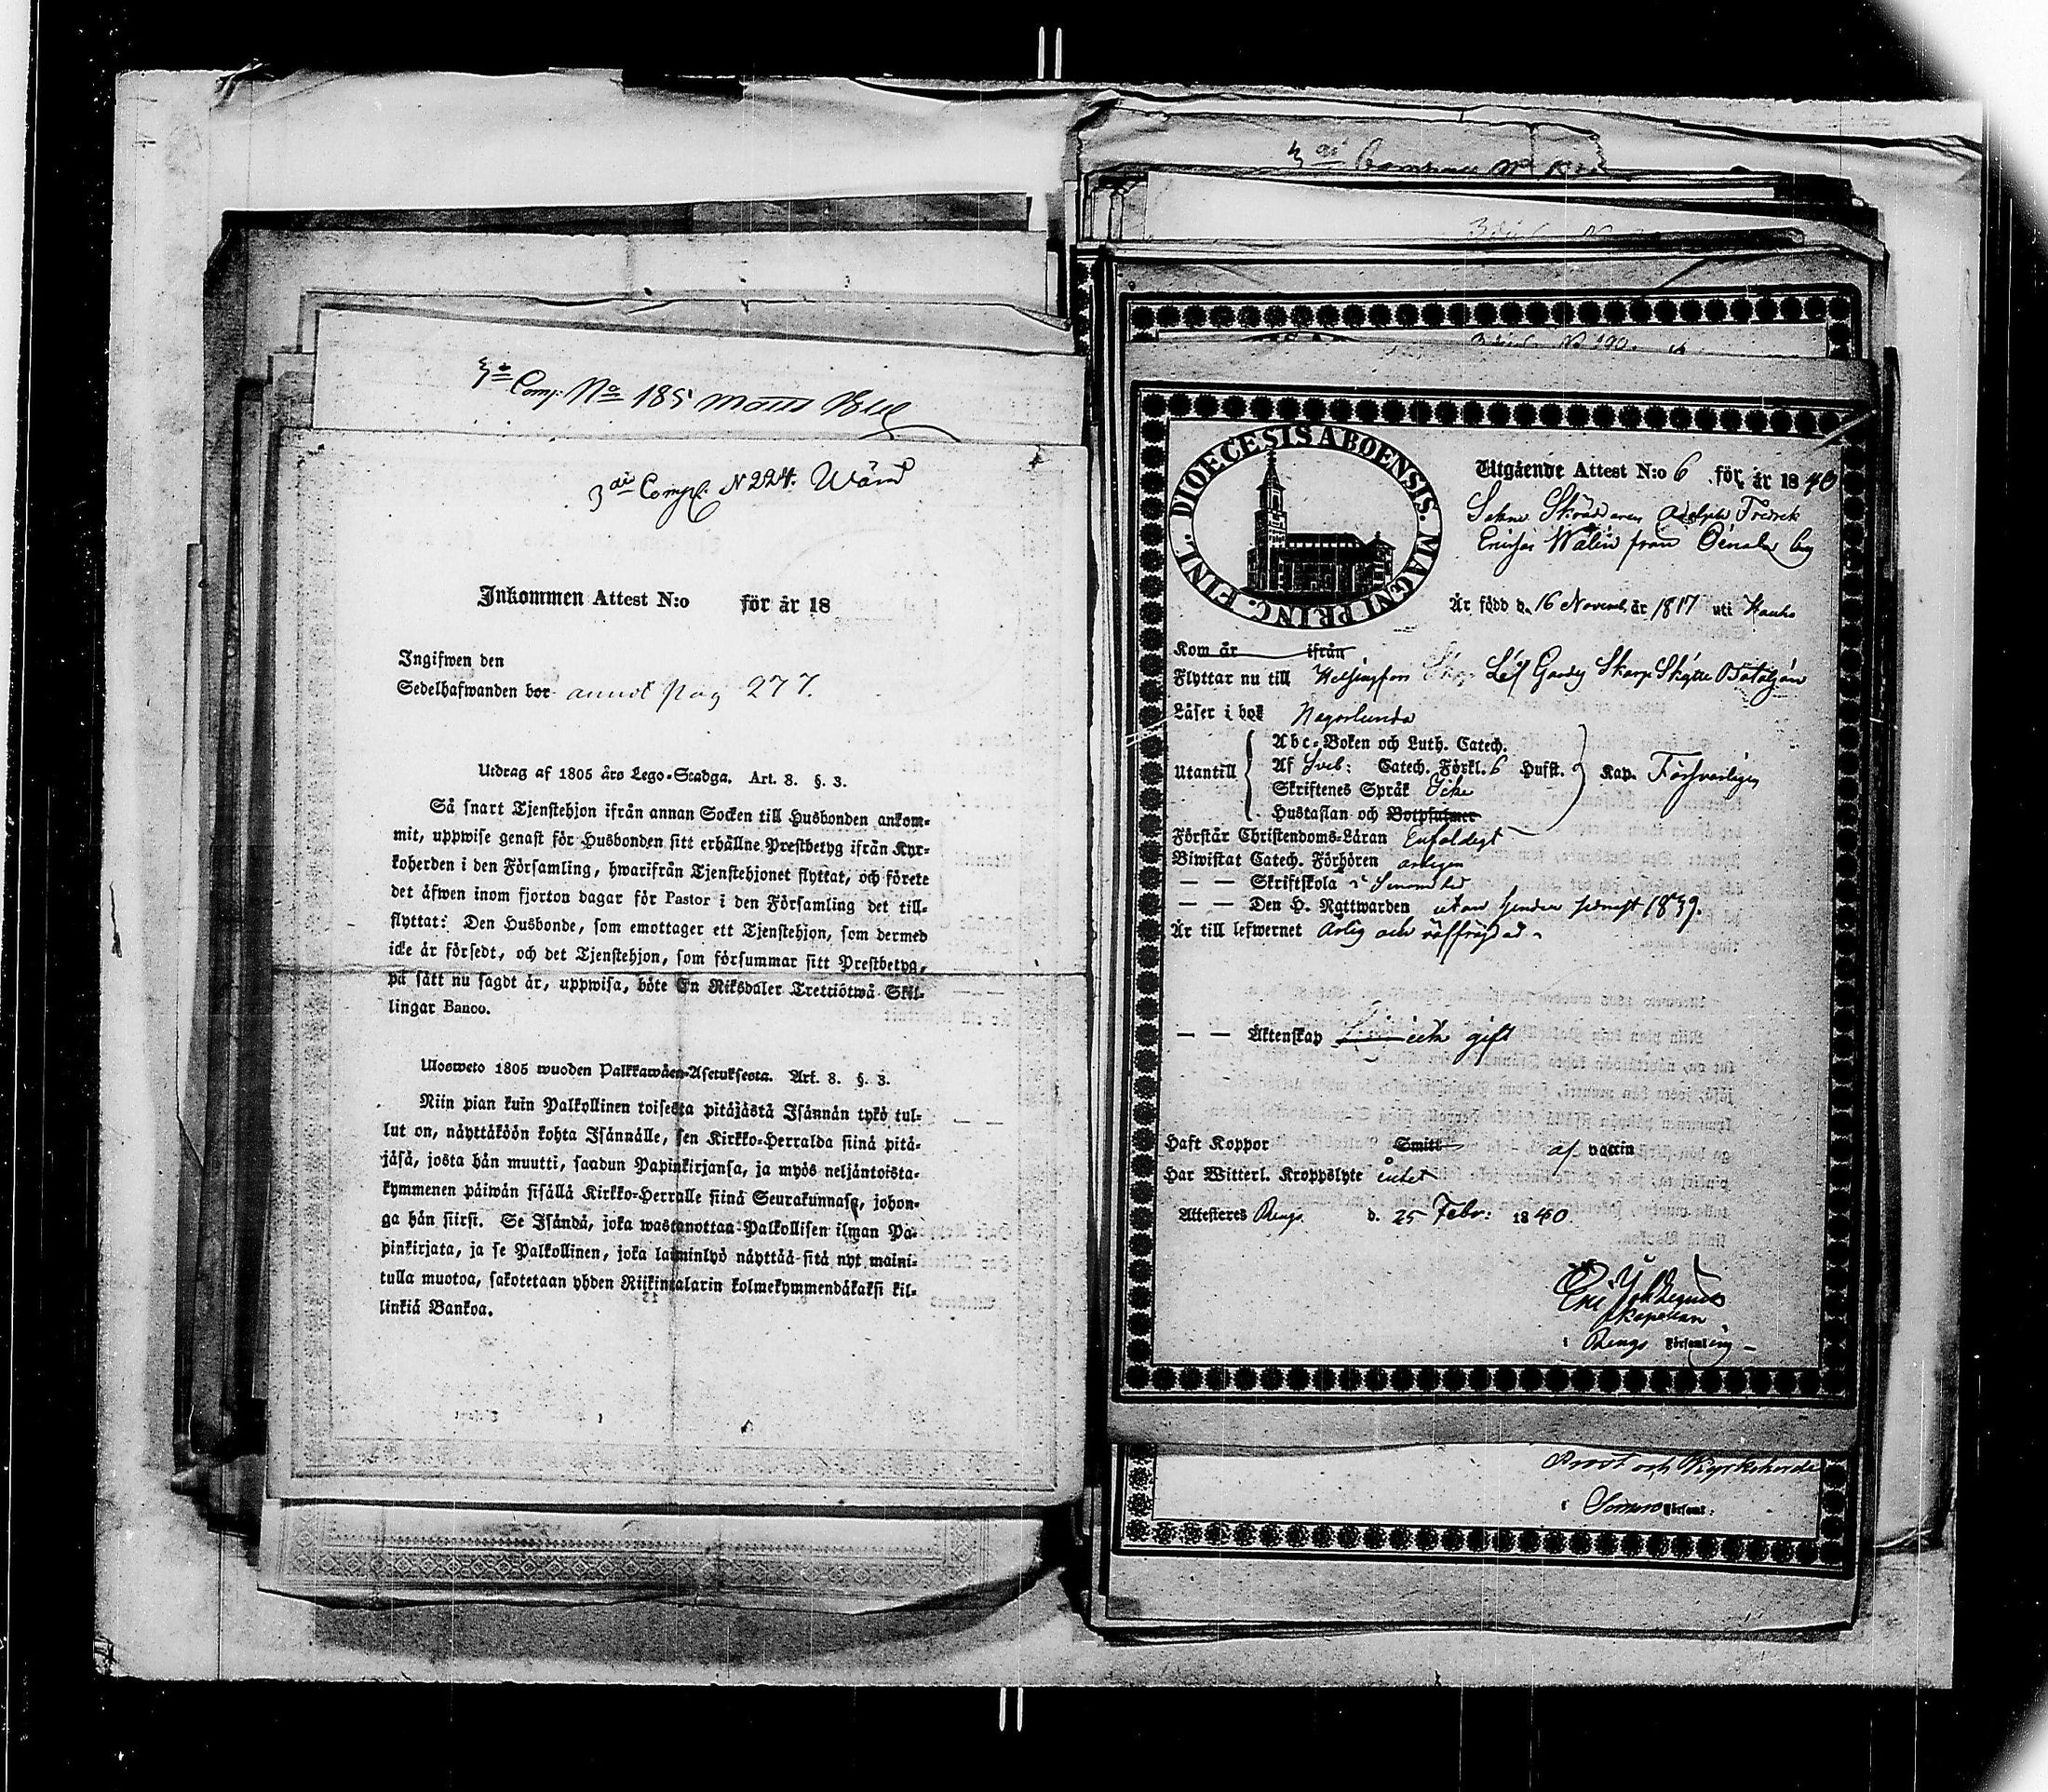 3de Comp: No 185 Matts
3die Comp. N 224. Wärd
Inkommen Attest N:o för år 18
Ingifwen den
Sedelhafwanden bor annot pag 277.
Utdrag af 1805 års Lego-Stadga. Art. 8. §. 3.
Så snart Tjenstehjon ifrån annan Socken till Husbonden ankom-
mit, uppwise genast för Husbonden sitt erhållne Prestbetyg ifrån Kyr-
koherden i den Församling, hwarifrån Tjenstehjonet flyttat, och förete
det äfwen inom fjorton dagar för Pastor i den Församling det till-
flyttat: Den Husbonde, som emottager ett Tjenstehjon, som dermed
icke är försedt, och det Tjenstehjon, som försummar sitt Prestbetyg,
på sätt nu sagdt är, uppwisa, böte En Riksdaler Trettiotwå Skil-
lingar Banco.
Ulosweto 1805 wuoden Palkkawäen-Asetuksesta. Art. 8. §. 3.
Niin pian kuin Palkollinen toisesta pitäjästä Isännän tykö tul-
lut on, näyttäköön kohta Isännälle, sen Kirkko-Herralda siinä pitä-
jäsä, josta hän muutti, saadun Papinkirjansa, ja myös neljäntoista-
kymmenen päiwän sisällä Kirkko-Herralle siinä Seurakunnasa, johon-
ga hän siirsi. Se Isändä, joka wastanottaa Palkollisen ilman Pa-
pinkirjata, ja se Palkollinen, joka laiminlyö näyttää sitä nyt maini-
tulla muotoa, sakotetaan yhden Riikintalarin kolmekymmendäkaksi kil-
linkiä Bankoa.
DIOECESIS ABOENSIS. MAGNI PRINC. FINL.
Utgående Attest N:o 6 för år 1840
Skräddaren Adolph Fredrik
Ericsson Walin från by
Är född d. 16 Novemb. år 1817 uti Hauho
Kom år ifrån
Flyttar nu till Helsingfors Lif Gardes Skarp Skytte Bataljon
Läser i bok Någorlunda
Abc-Boken och Luth. Catech.
Utantill Af Sveb: Catech. Förkl. 6 Hufst. Kap. Försvarligen
Skriftenes Språk Icke
Hustaflan och Botpsalmer
Förstår Christendoms-Läran Enfaldigt
Biwistat Catech. Förhören årligen
— — Skriftskola
— — Den H. Nattwarden utan hinder sednast 1839.
Är till lefwernet Ärlig och välfräjdad
— — Äktenskap icke gift
Haft Koppor Smitt af vaccin
Har Witterl. Kroppslyte intet
Attesteres Rengo d. 25 Febr: 1840
Kapellan
i Rengo Församling
Prost och Kyrkoherde
i Somero Församl: